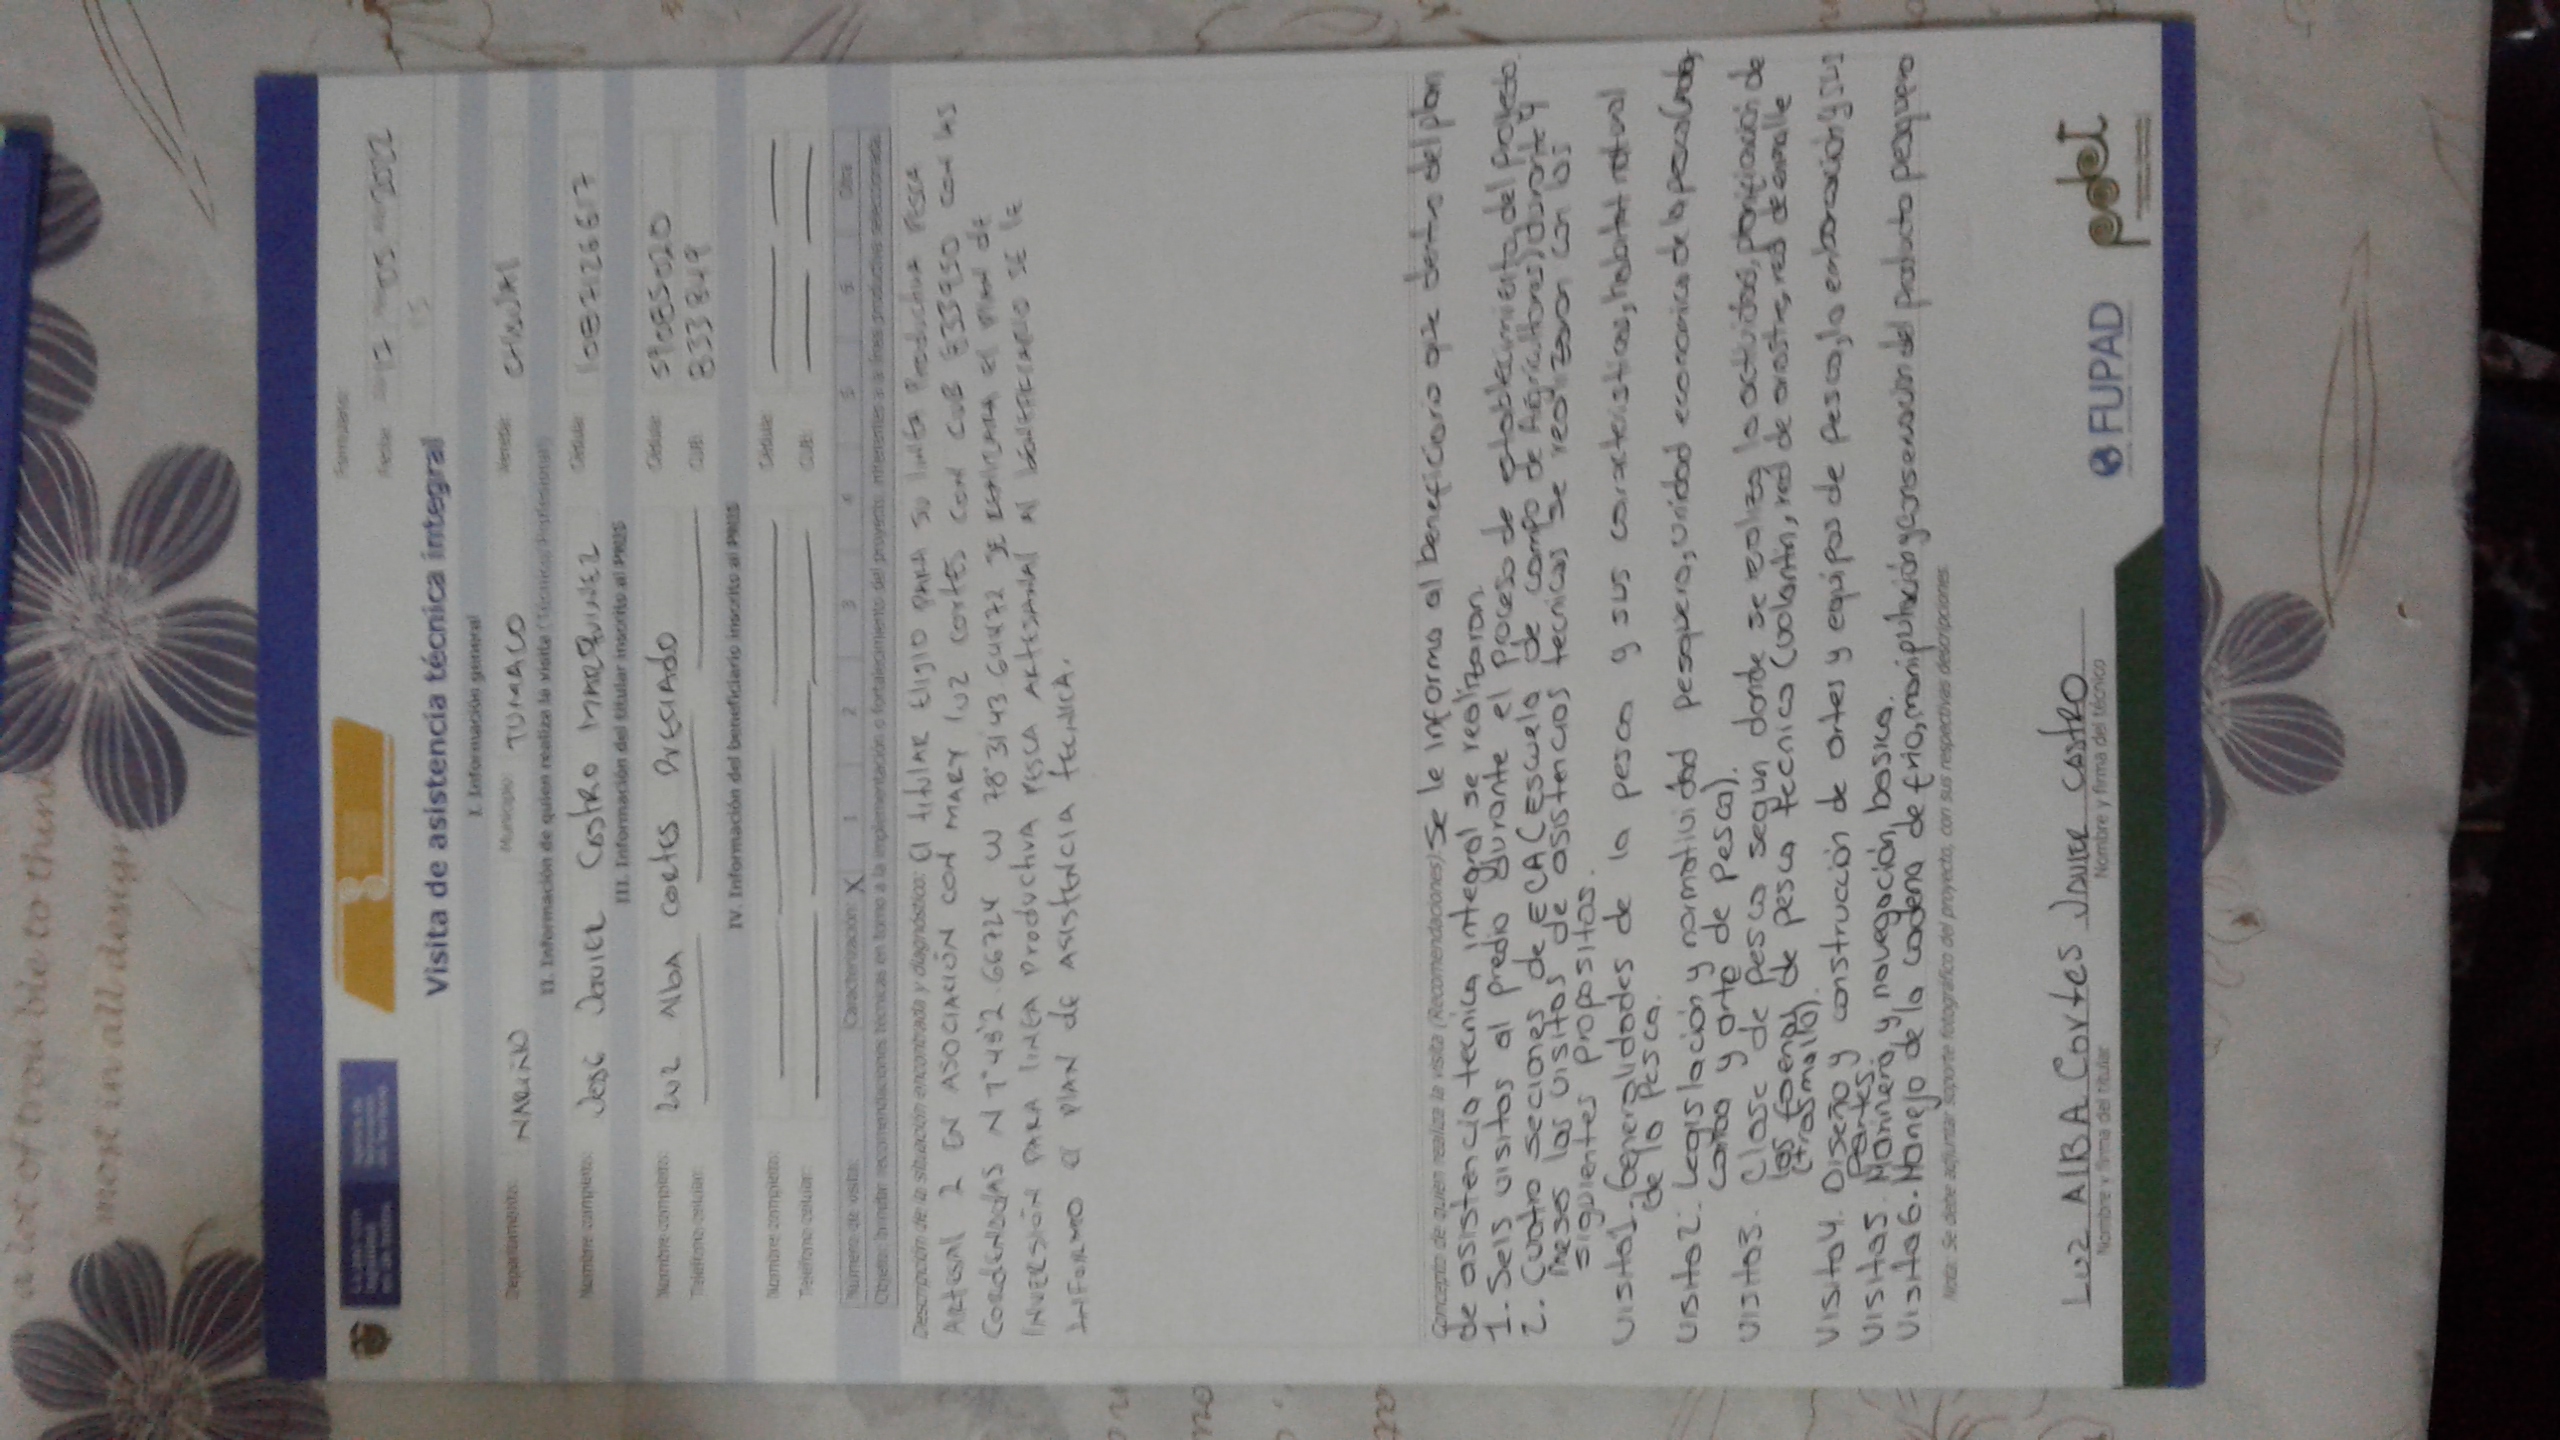 Formulario:
Fecha: 17 05 2022
15
Visita de asistencia técnica integral
I. Información general
Departamento: NARIÑO Municipio: TUMACO Vereda: CHAJAL
II. Información de quien realiza la visita (Técnico/Profesional)
Nombre completo: José Javier Castro MARQUINEZ Cédula: 1087126617
III. Información del titular inscrito al PNIS
Nombre completo: LUZ AlbA Cortes PreciADo Cédula: 59085020
Teléfono celular: CUB: 833849
IV. Información del beneficiario inscrito al PNIS
Nombre completo: Cédula:
Teléfono celular: CUB:
Número de visita: Caracterización: X 1 2 3 4 5 6 Otra
Objeto: brindar recomendaciones técnicas en torno a la implementación o fortalecimiento del proyecto, inherentes a la línea productiva seleccionada.
Descripción de la situación encontrada y diagnóstico: El titular Eligio PARA Su linEA Productiva PESCA
ARTESAl 2 EN ASOCIACIÓN CON MARY luz CORTÉS CON CUB 833950 CON lAS
CORDENADAS N 1°43'2.66724 W 78°31'43.64472 SE REAlIZARA El PlAN dE
INVERSIÓN PARA lINEA ProductivA PESCA ARTESANAl Al bENEFICIARIO SE lE
INFORMO El PlAN dE ASIStENCIA TECNICA.
Concepto de quien realiza la visita (Recomendaciones): Se le informa al beneficiaro que dentro del plan
de asistencia tecnica integral se realizaran.
1.- Seis visitas al predio durante el proceso de establecimiento del proyecto.
2.- Cuatro secciones de ECA (Escuela de campo de Agricultores) durante 4
meses las visitas de asistencias tecnicas se realizaran con los
siguientes propositos.
Visita1.- Generalidades de la pesca y sus caracteristicas, habitat natural
de la pesca.
Visita2. Legislación y normatividad pesquera, unidad economica de la pesca (nota,
canoa y arte de pesca).
Visita3. Clase de pesca segun donde se realiza la actividad, planificación de
las faenas de pesca tecnica (volantin, red de arrastre, red de enmalle
(trasmallo).
Visita4. Diseño y construcción de artes y equipos de pesca, la embarcación y sus
partes.
Visita5. Marinería y navegación basica.
Visita6.- Manejo de la cadena de frio, manipulación y conservación del producto pesquero
Nota: Se debe adjuntar soporte fotográfico del proyecto, con sus respectivas descripciones.
LUZ AlBA Cortes
Nombre y firma del titular
Javier CAStRO
Nombre y firma del técnico
FUPAD
pdet